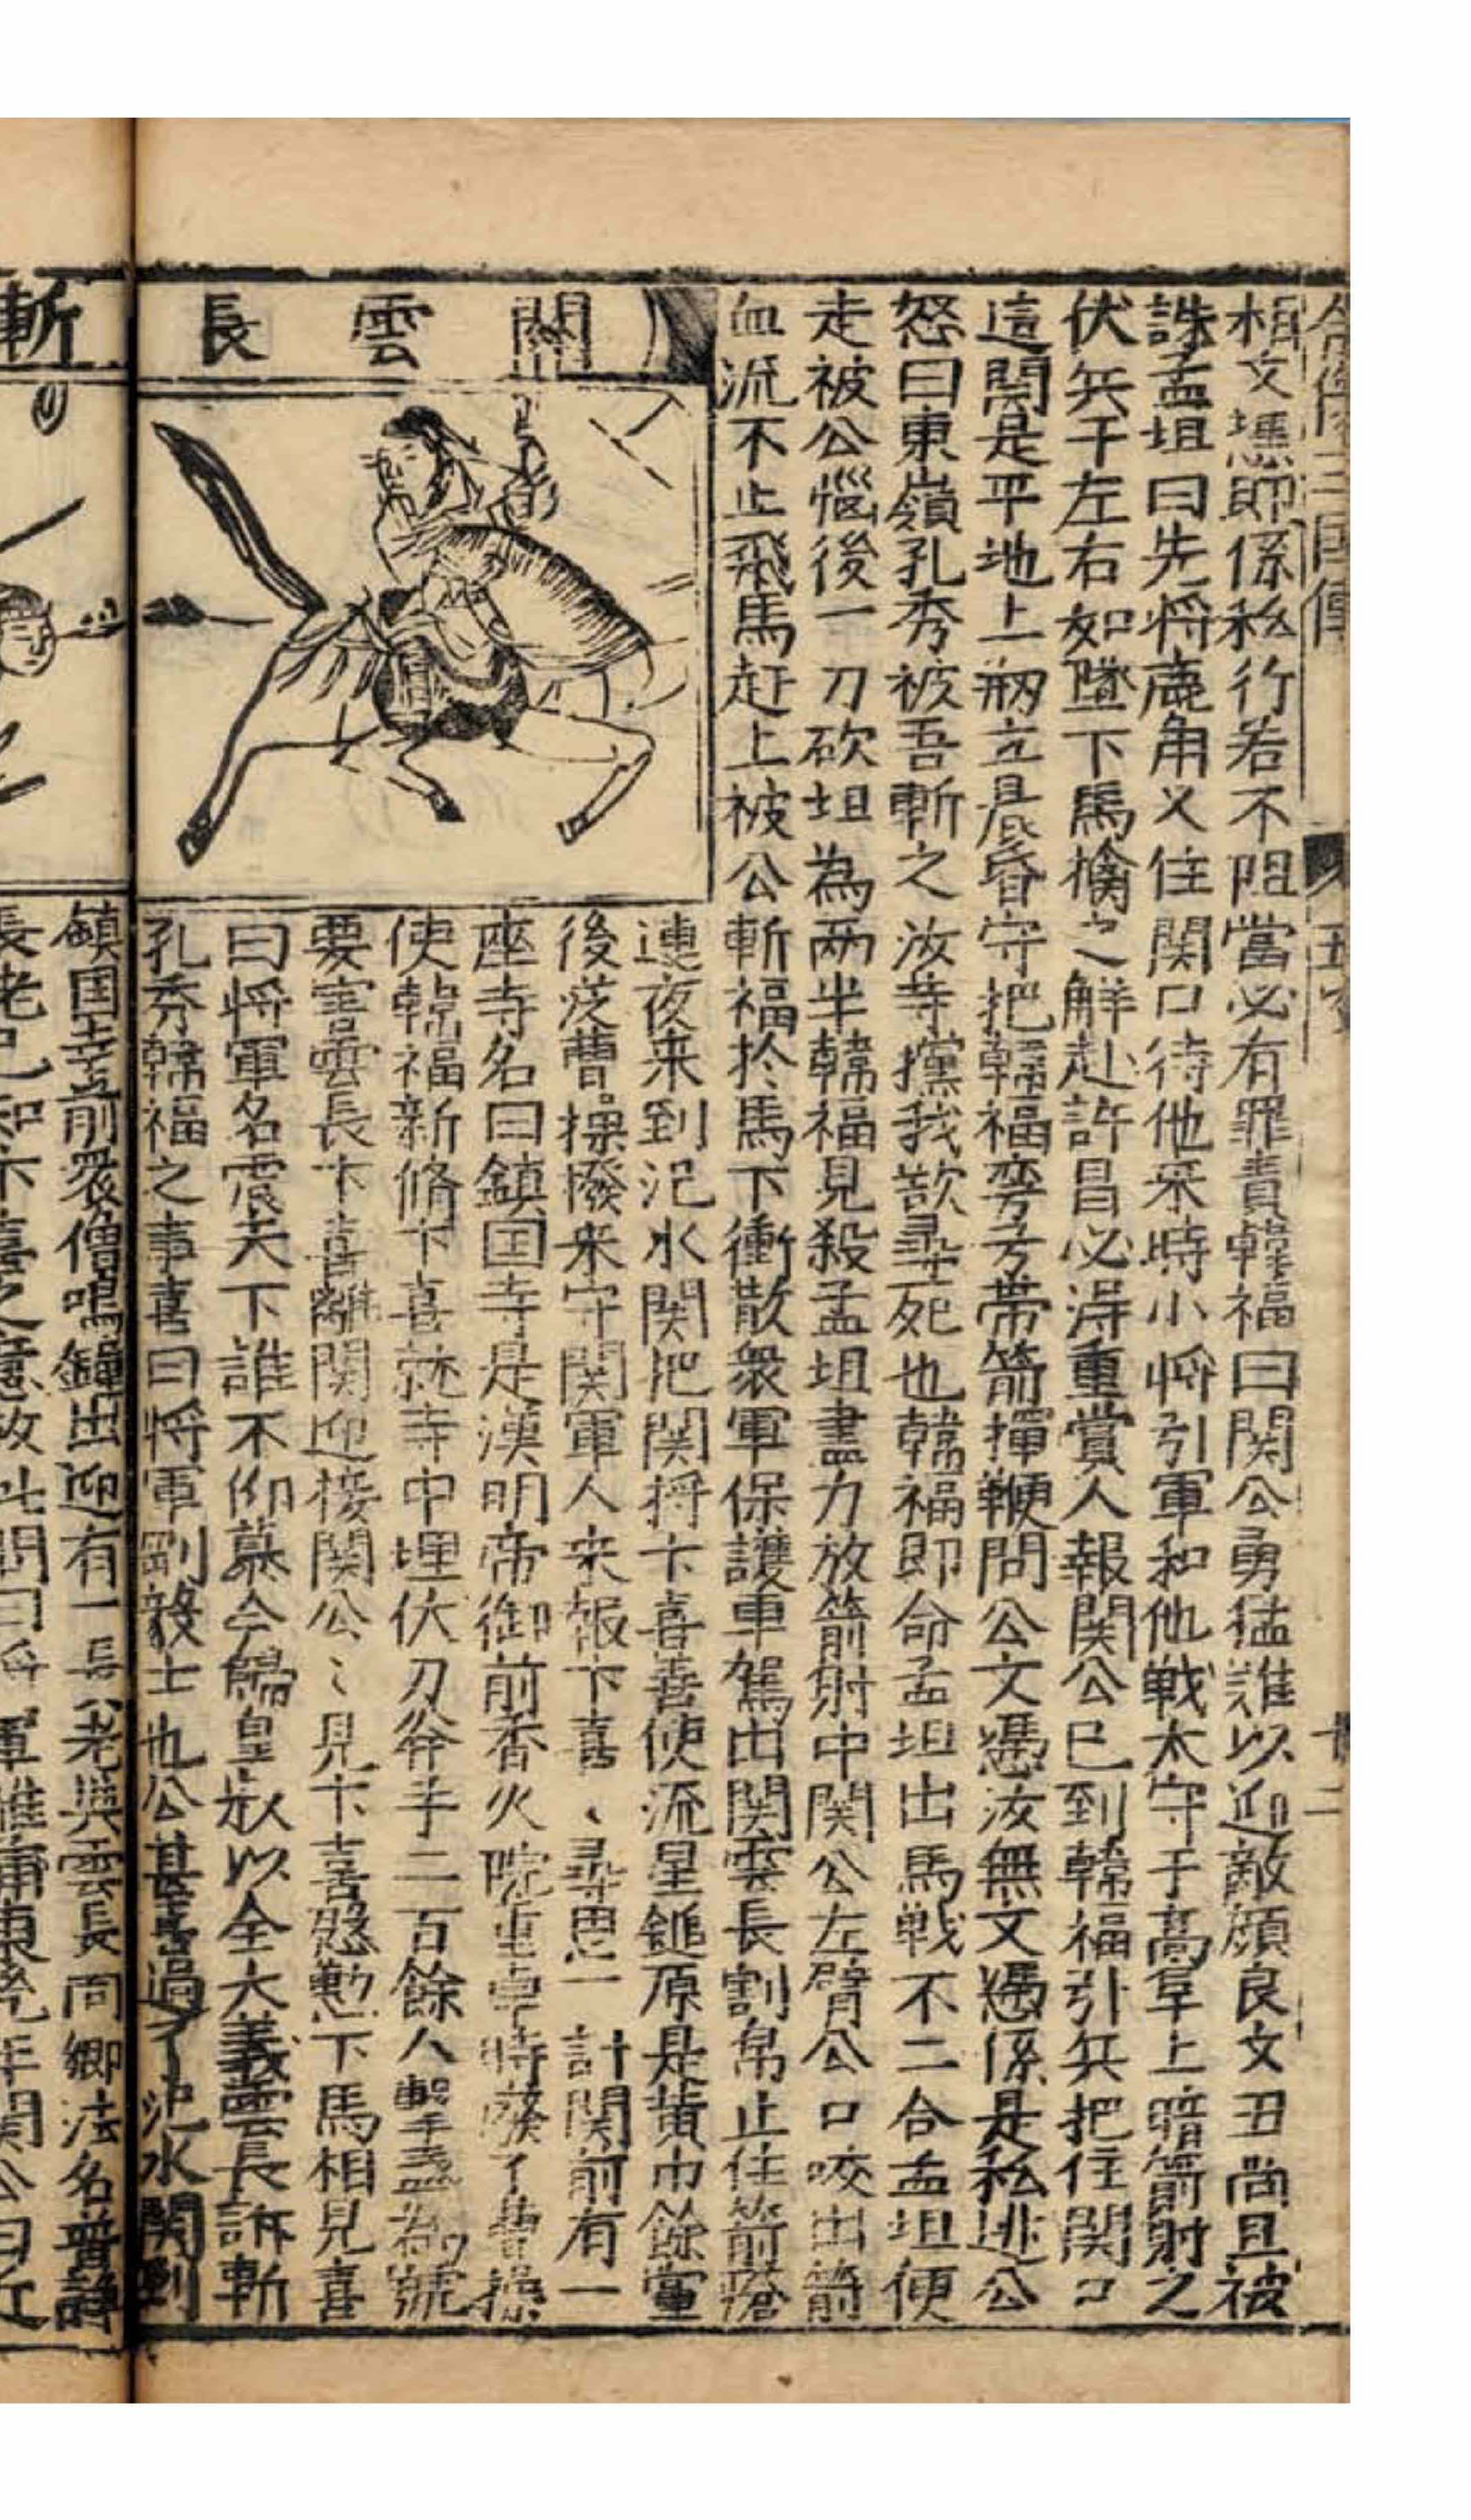 全像三国傳 五卷 十二
相文憑即係私行若不阻當必有罪責韓福曰関公勇猛難以迎敵顔良文丑尚且被
誅孟坦曰先将鹿角义住関口待他来時小将引軍和他戦太守于高阜上暗箭射之
伏兵于左右如墜下馬擒之觧赴許昌必淂重賞人報関公已到韓福引兵把住関口
這関是平地上剏立晨昏守把韓福弯弓帶箭揮鞭問公文憑汝無文憑係是私逃公
怒曰東嶺孔秀被吾斬之汝等攩我欲尋死也韓福即命孟坦出馬戦不二合孟坦便
走被公惱後一刀砍坦為兩半韓福見殺孟坦盡力放箭射中関公左臂公口咬出箭
血流不止飛馬赶上被公斬福扵馬下衝散衆軍保護車駕出関雲長割帛止住箭瘡
関雲長
連夜来到汜水関把関将卞喜善使流星鎚原是黄巾餘黨
後投曹操撥来守関軍人来報卞喜〻尋思一計関前有一
座寺名曰鎮国寺是漢明帝御前香火院董卓時廢了曹操
使韓福新修卞喜就寺中埋伏刀斧手二百餘人擊盞為號
要害雲長卞喜離関迎接関公〻見卞喜慇懃下馬相見喜
曰将軍名震天下誰不仰慕今歸皇叔以全大義雲長訴斬
孔秀韓福之事喜曰将軍剛毅士也公甚喜過了汜水関到
斬
鎮国寺前衆僧鳴鐘出迎有一長老與雲長同鄉法名普静
長老已知卞喜之意故此問曰将軍離蒲東幾年関公曰近